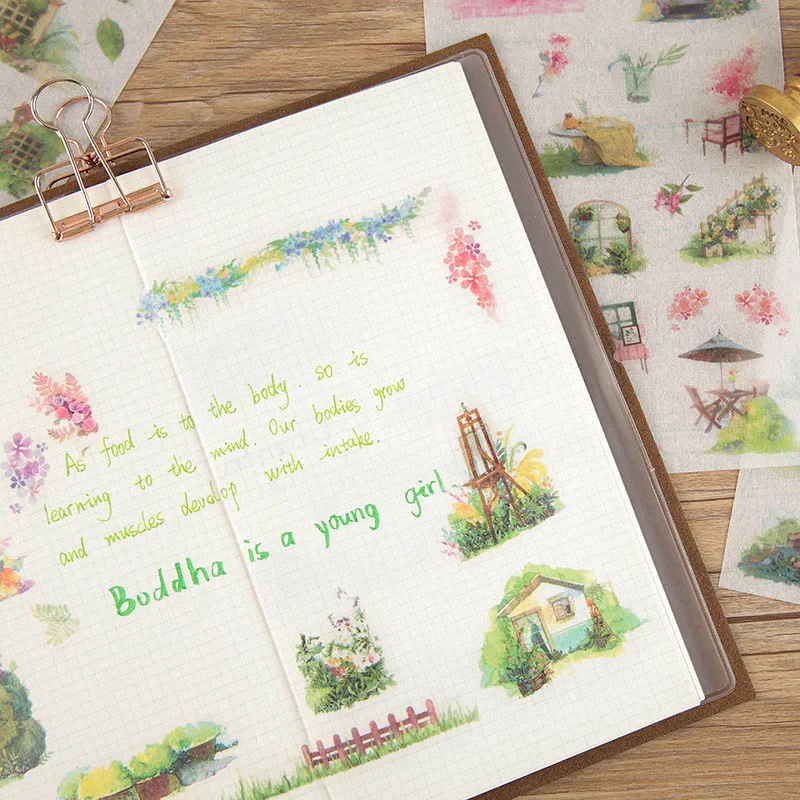 As food is to the body. so is
learning to the mind. Our bodies grow
and muscles develop with intake.
Buddha is a young girl